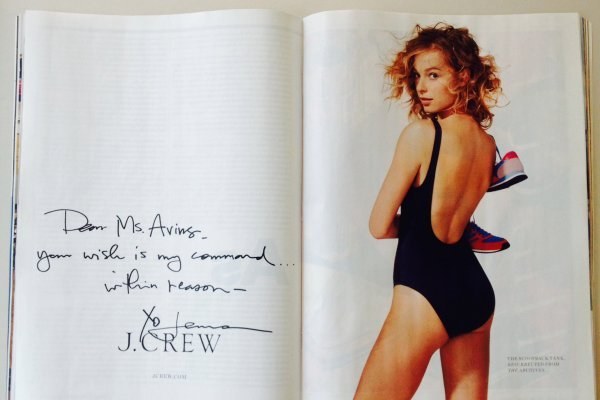 Dear Ms. Avins-
your wish is my command...
within reason-
XO Jenna
J.CREW
JCREW.COM